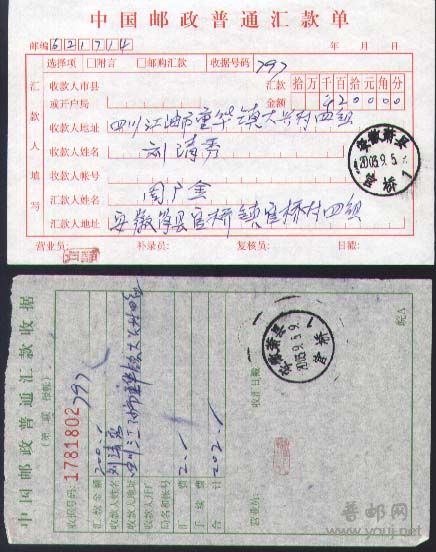 中国邮政普通汇款单
邮编621714 年 月 日
选择项 □附言 □邮购汇款 收据号码 797
收款人市县
或开户局
汇款金额 十万千百拾元角分
20000
收款人地址 四川江油市重华镇大兴村四组
收款人姓名 刘清秀
收款人账号
汇款人姓名 周广金
汇款人地址 安徽萧县官桥镇官桥村四组
汇款人填写
营业员: 补录员: 复核员: 日戳:
安徽萧县
2003.9.5
官桥
1
中国邮政普通汇款收据
收据号码: 1781802 797
汇款金额 200.-
收款人姓名 刘清秀
收款人地址 四川江油市重华镇大兴村四组
收款人开户局名和帐号
汇费 2.-
手续费
合计 202.-
收汇日戳
营业员:
皖A
安徽萧县
2003.9.5
官桥
1
普邮网
www.youj.net